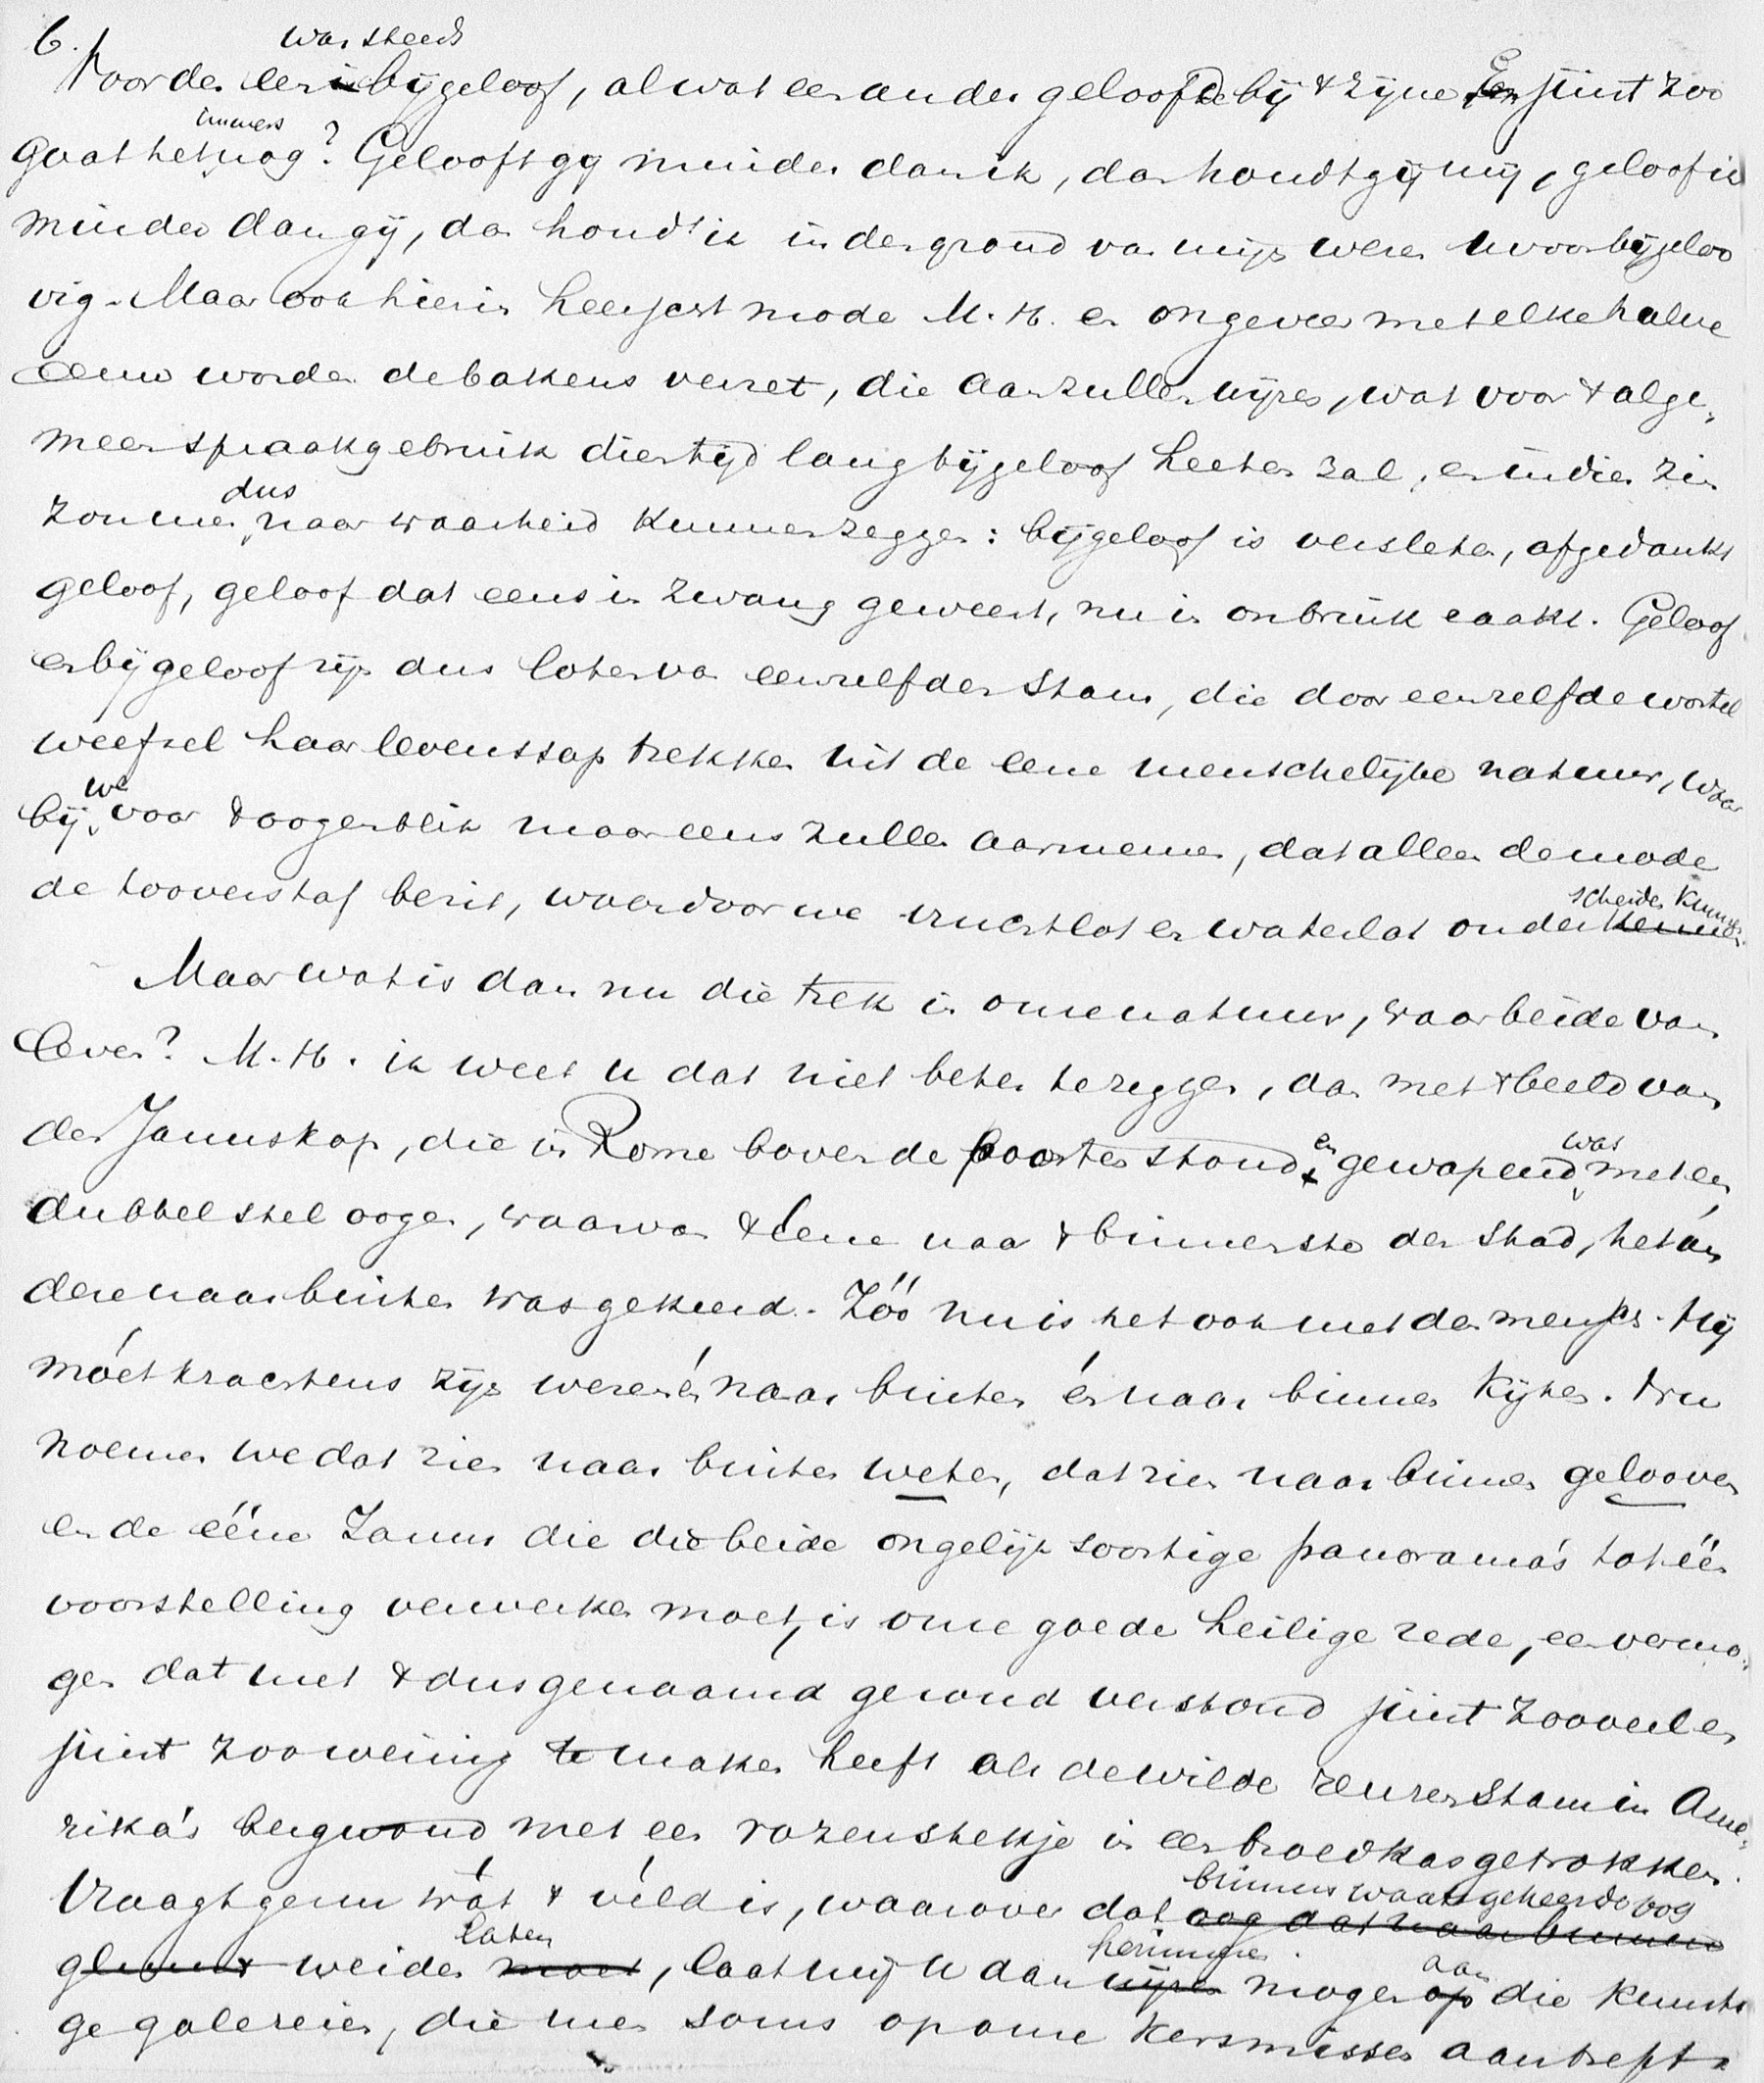 6.
was steeds
Voor den een bijgeloof, al wat een ander geloofde bij 't zijne. En juist zoo
immers
gaat het nog? Gelooft gij minder dan ik, dan houdt gij mij, geloof ik
minder dan gij, dan houd ik in den grond van mijn wezen u voor bijgeloo
vig. Maar ook hierin heerscht mode M.H. en ongeveer met elke halve
eeuw worden de bakens verzet, die aan zullen wijzen, wat voor 't alge,
meen spraakgebruik dien tijd lang bijgeloof heeten zal, en in dien zin
dus
zou men naar waarheid kunnen zeggen: bijgeloof is versleten, afgedankt
geloof, geloof dat eens in zwang geweest, nu in onbruik raakt. Geloof
en bijgeloof zijn dus loten van eenzelfden stam, die door eenzelfde wortel
weefsel haar levenssap trekken uit de eene menschelijke natuur, waar
we
bij voor 't oogenblik maar eens zullen aannemen, dat alleen de mode
de tooverstaf bezit, waardoor we vruchtlot en waterlot onderkennen
scheiden kunnen.
Maar wat is dan nu die trek in onze natuur, waar beide van
leven? M.H. ik weet u dat niet beter te zeggen, dan met 't beeld van
den Januskop, die in Rome boven de poorten stond en gewapend was met een
dubbel stel oogen, waarvan 't eene naar 't binnenste der stad, het an
dere naar buiten was gekeerd. Zóó nu is het ook met den mensch. Hij
móet krachtens zijn wezen én naar buiten én naar binnen kijken. Nu
noemen we dat zien naar buiten weten, dat zien naar binnen gelooven
en de ééne Janus die die beide ongelijksoortige panorama's tot één
voorstelling verwerken moet, is onze goede heilige rede, een vermo,
gen dat met 't dusgenaamd gezond verstand juist zooveel en
juist zoo weinig te maken heeft als de wilde reuzenstam in Ame,
rika's bergwand met een rozenstekje in een broedkas getrokken.
Vraagt ge nu wát 't véld is, waarover dat oog dat naar binnen
binnenwaarts gekeerde oog
gluurt weiden moet laten, laat mij u dan wijzen herinneren mogen op aan die kunsti
ge galereien, die men soms op onze kermissen aantreft.